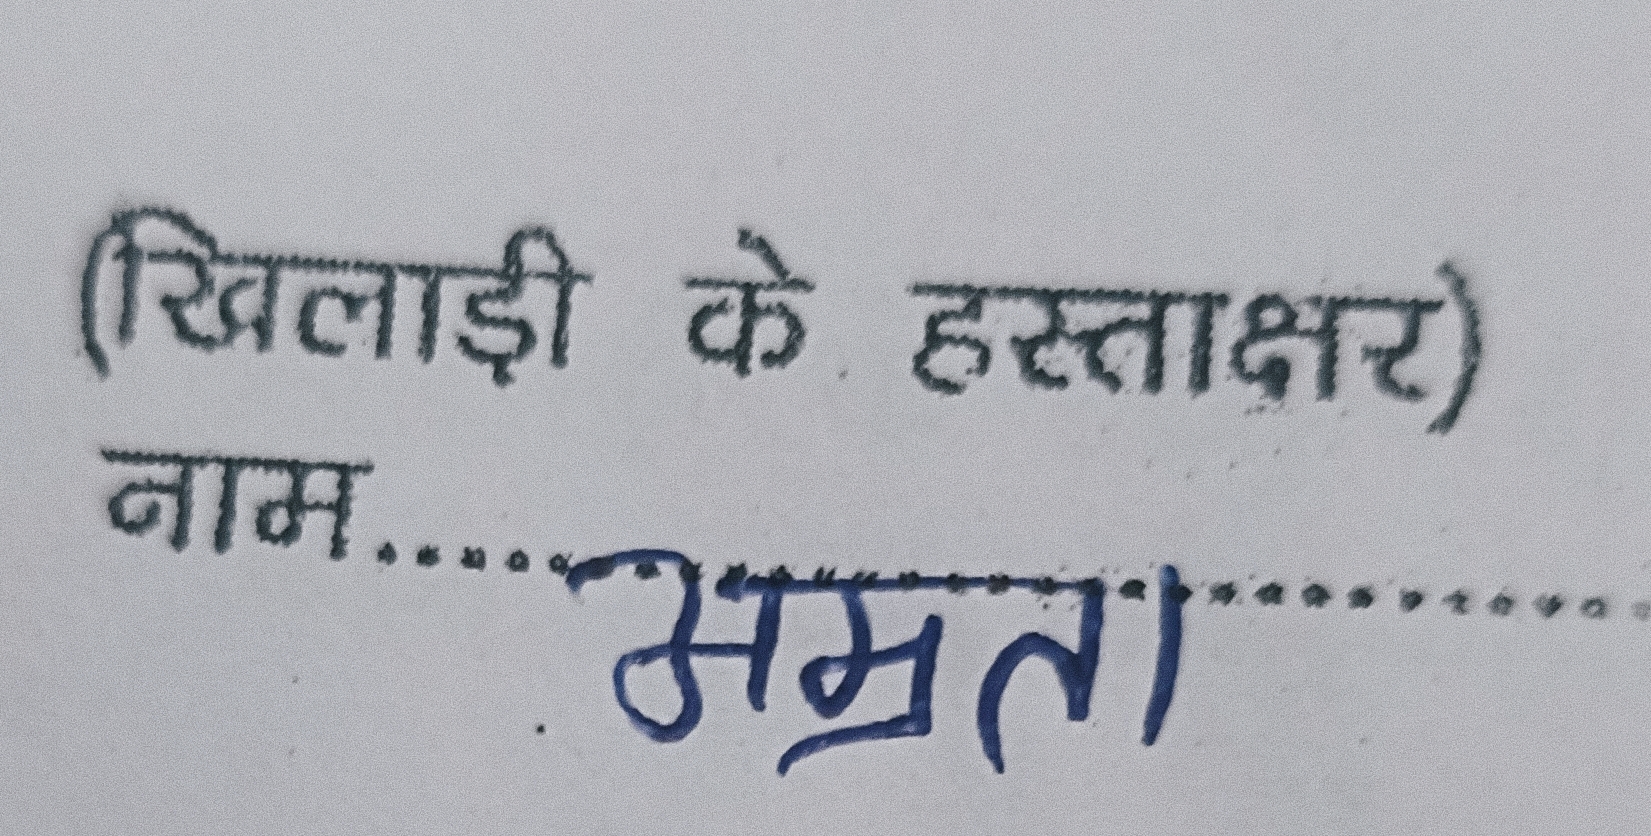 (खिलाड़ी के हस्ताक्षर)
नाम.............................. अम्रता